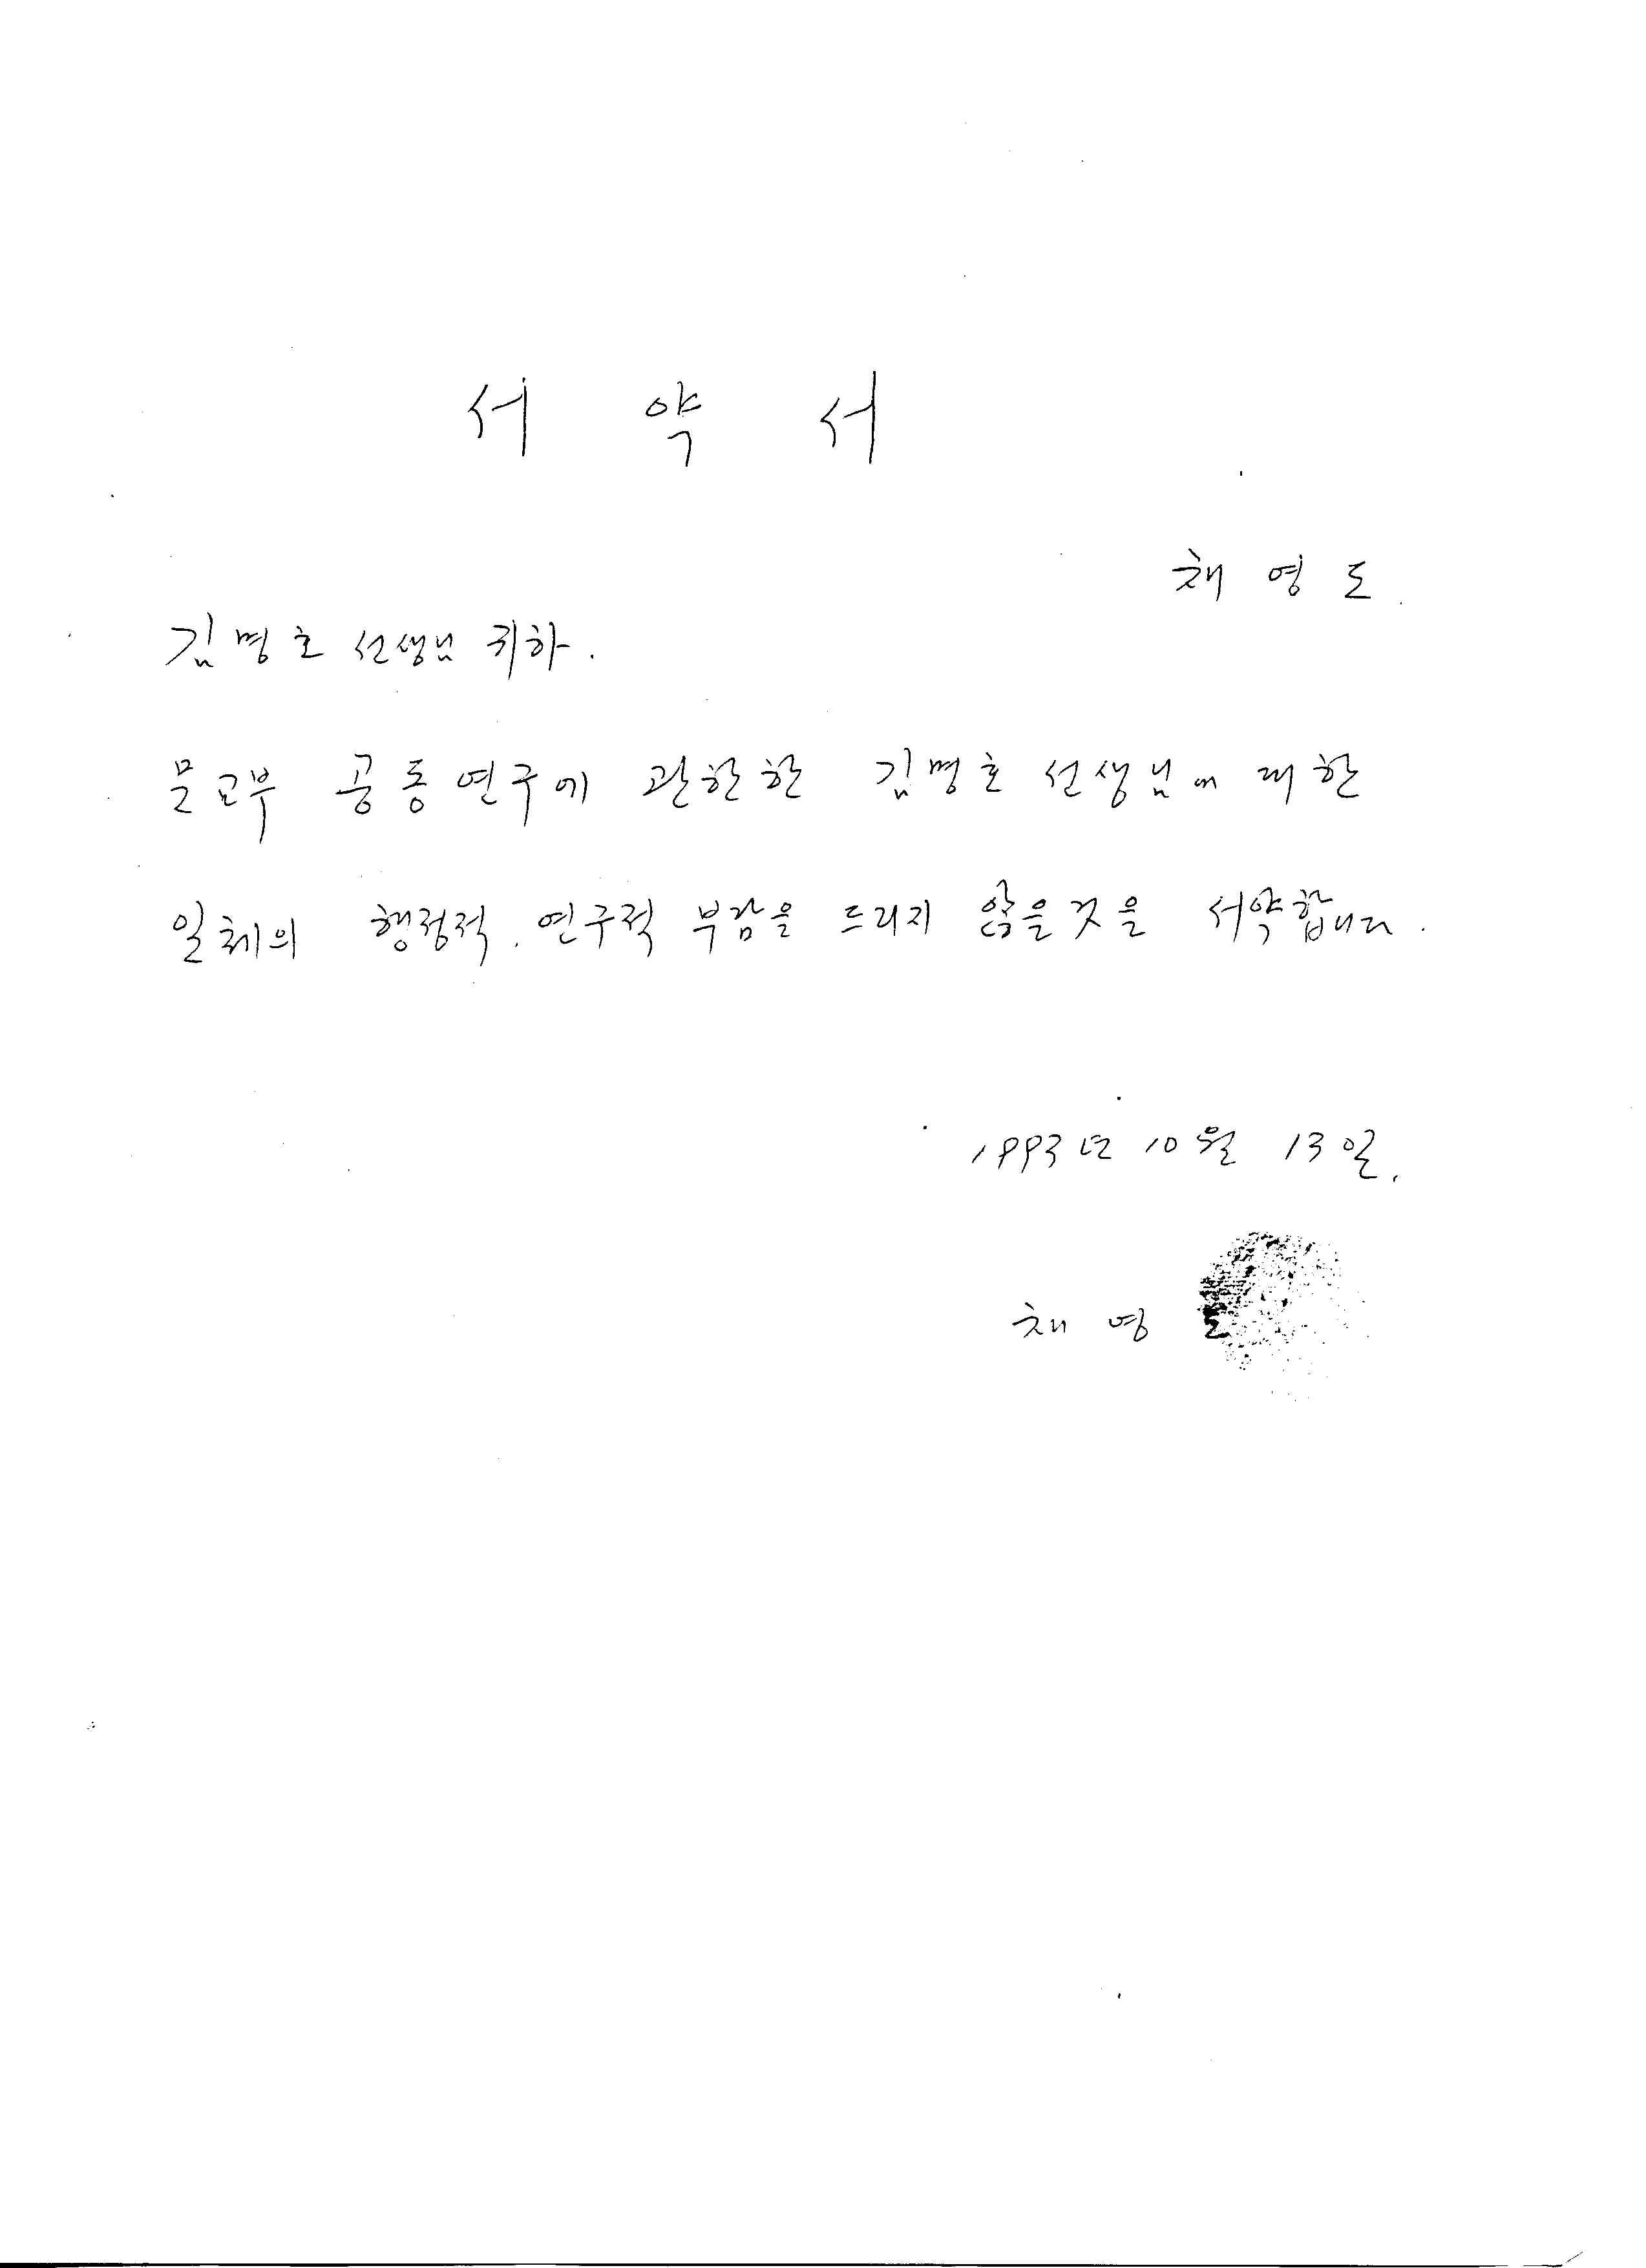 서 약 서
채 영 도.
김명호 선생님 귀하.
문교부 공동연구에 관한한 김명호 선생님에 대한
일체의 행정적. 연구적 부담을 드리지 않을것을 서약합니다.
1993년 10월 13일.
채 영 도